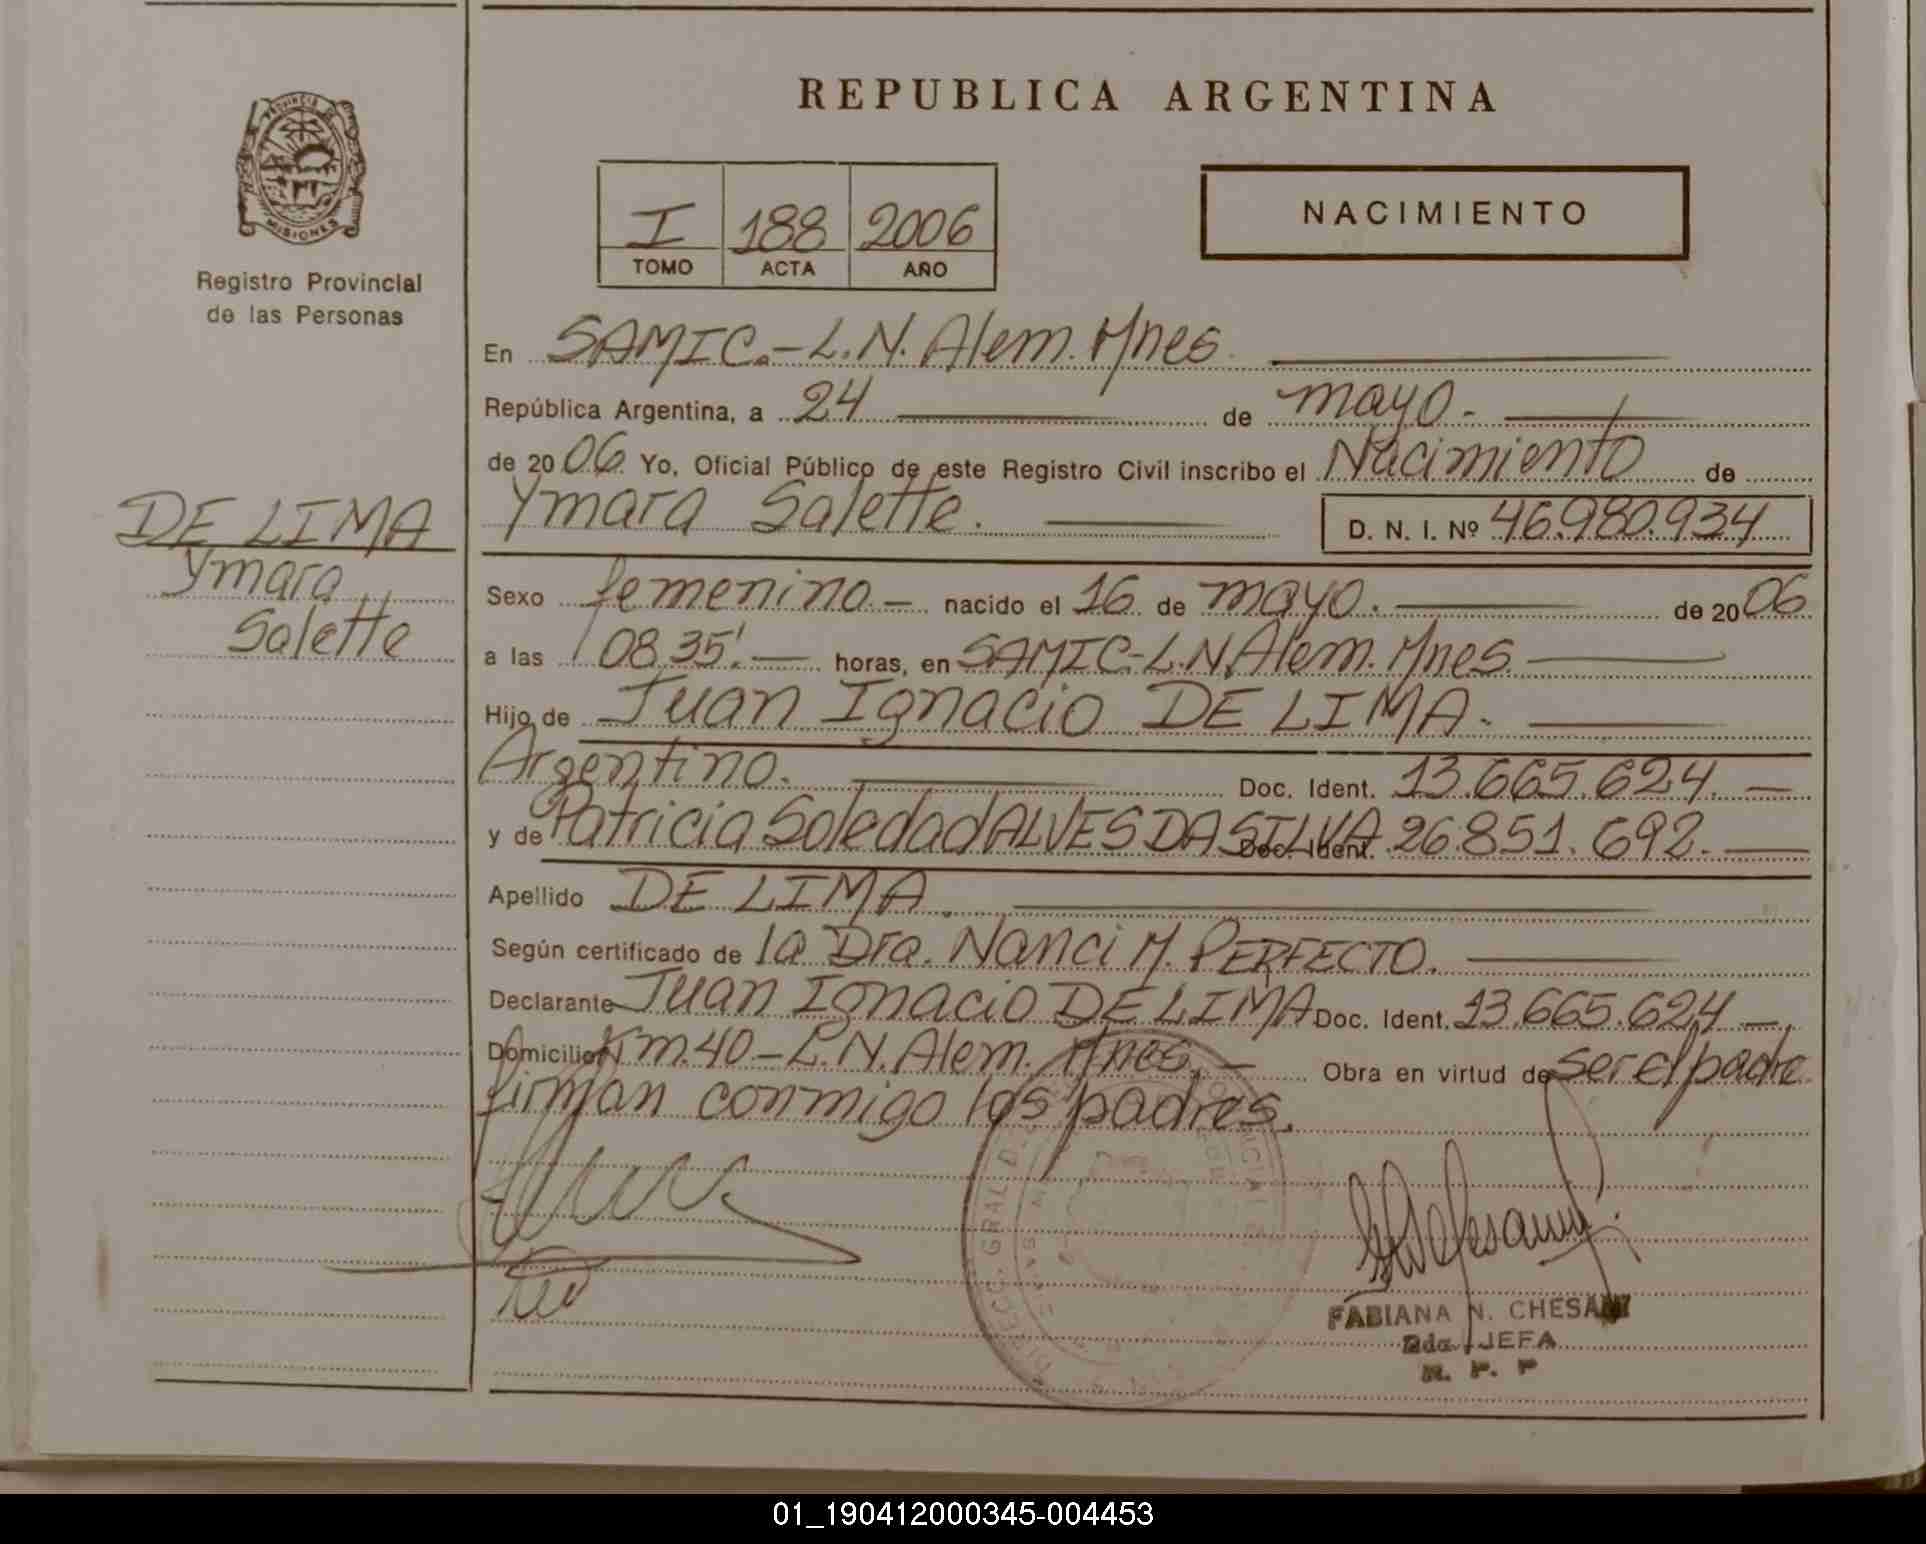 REPUBLICA ARGENTINA
PROVINCIA DE
MISIONES
Registro Provincial
de las Personas
I 188 2006
TOMO ACTA AÑO
NACIMIENTO
En SAMIC.-L.N. Alem. Mnes.
República Argentina, a 24 de mayo.
de 2006 Yo, Oficial Público de este Registro Civil inscribo el Nacimiento de
Ymara Salette. D. N. I. Nº 46.980.934
DE LIMA
Ymara
Salette
Sexo femenino.- nacido el 16 de mayo. de 2006
a las 08.35'.- horas, en SAMIC.-L.N. Alem. Mnes.
Hijo de Juan Ignacio DE LIMA.
Argentino. Doc. Ident. 13.665.624.-
y de Patricia Soledad ALVES DA SILVA Doc. Ident. 26.851.692.-
Apellido DE LIMA.
Según certificado de la Dra. Nanci M. PERFECTO.
Declarante Juan Ignacio DE LIMA Doc. Ident. 13.665.624-
Domicilio Km.40-L.N. Alem. Mnes.- Obra en virtud de ser el padre
firman conmigo los padres.
DIRECC. GRAL D
FABIANA N. CHESANI
2da. JEFA
R. P. P
01_190412000345-004453